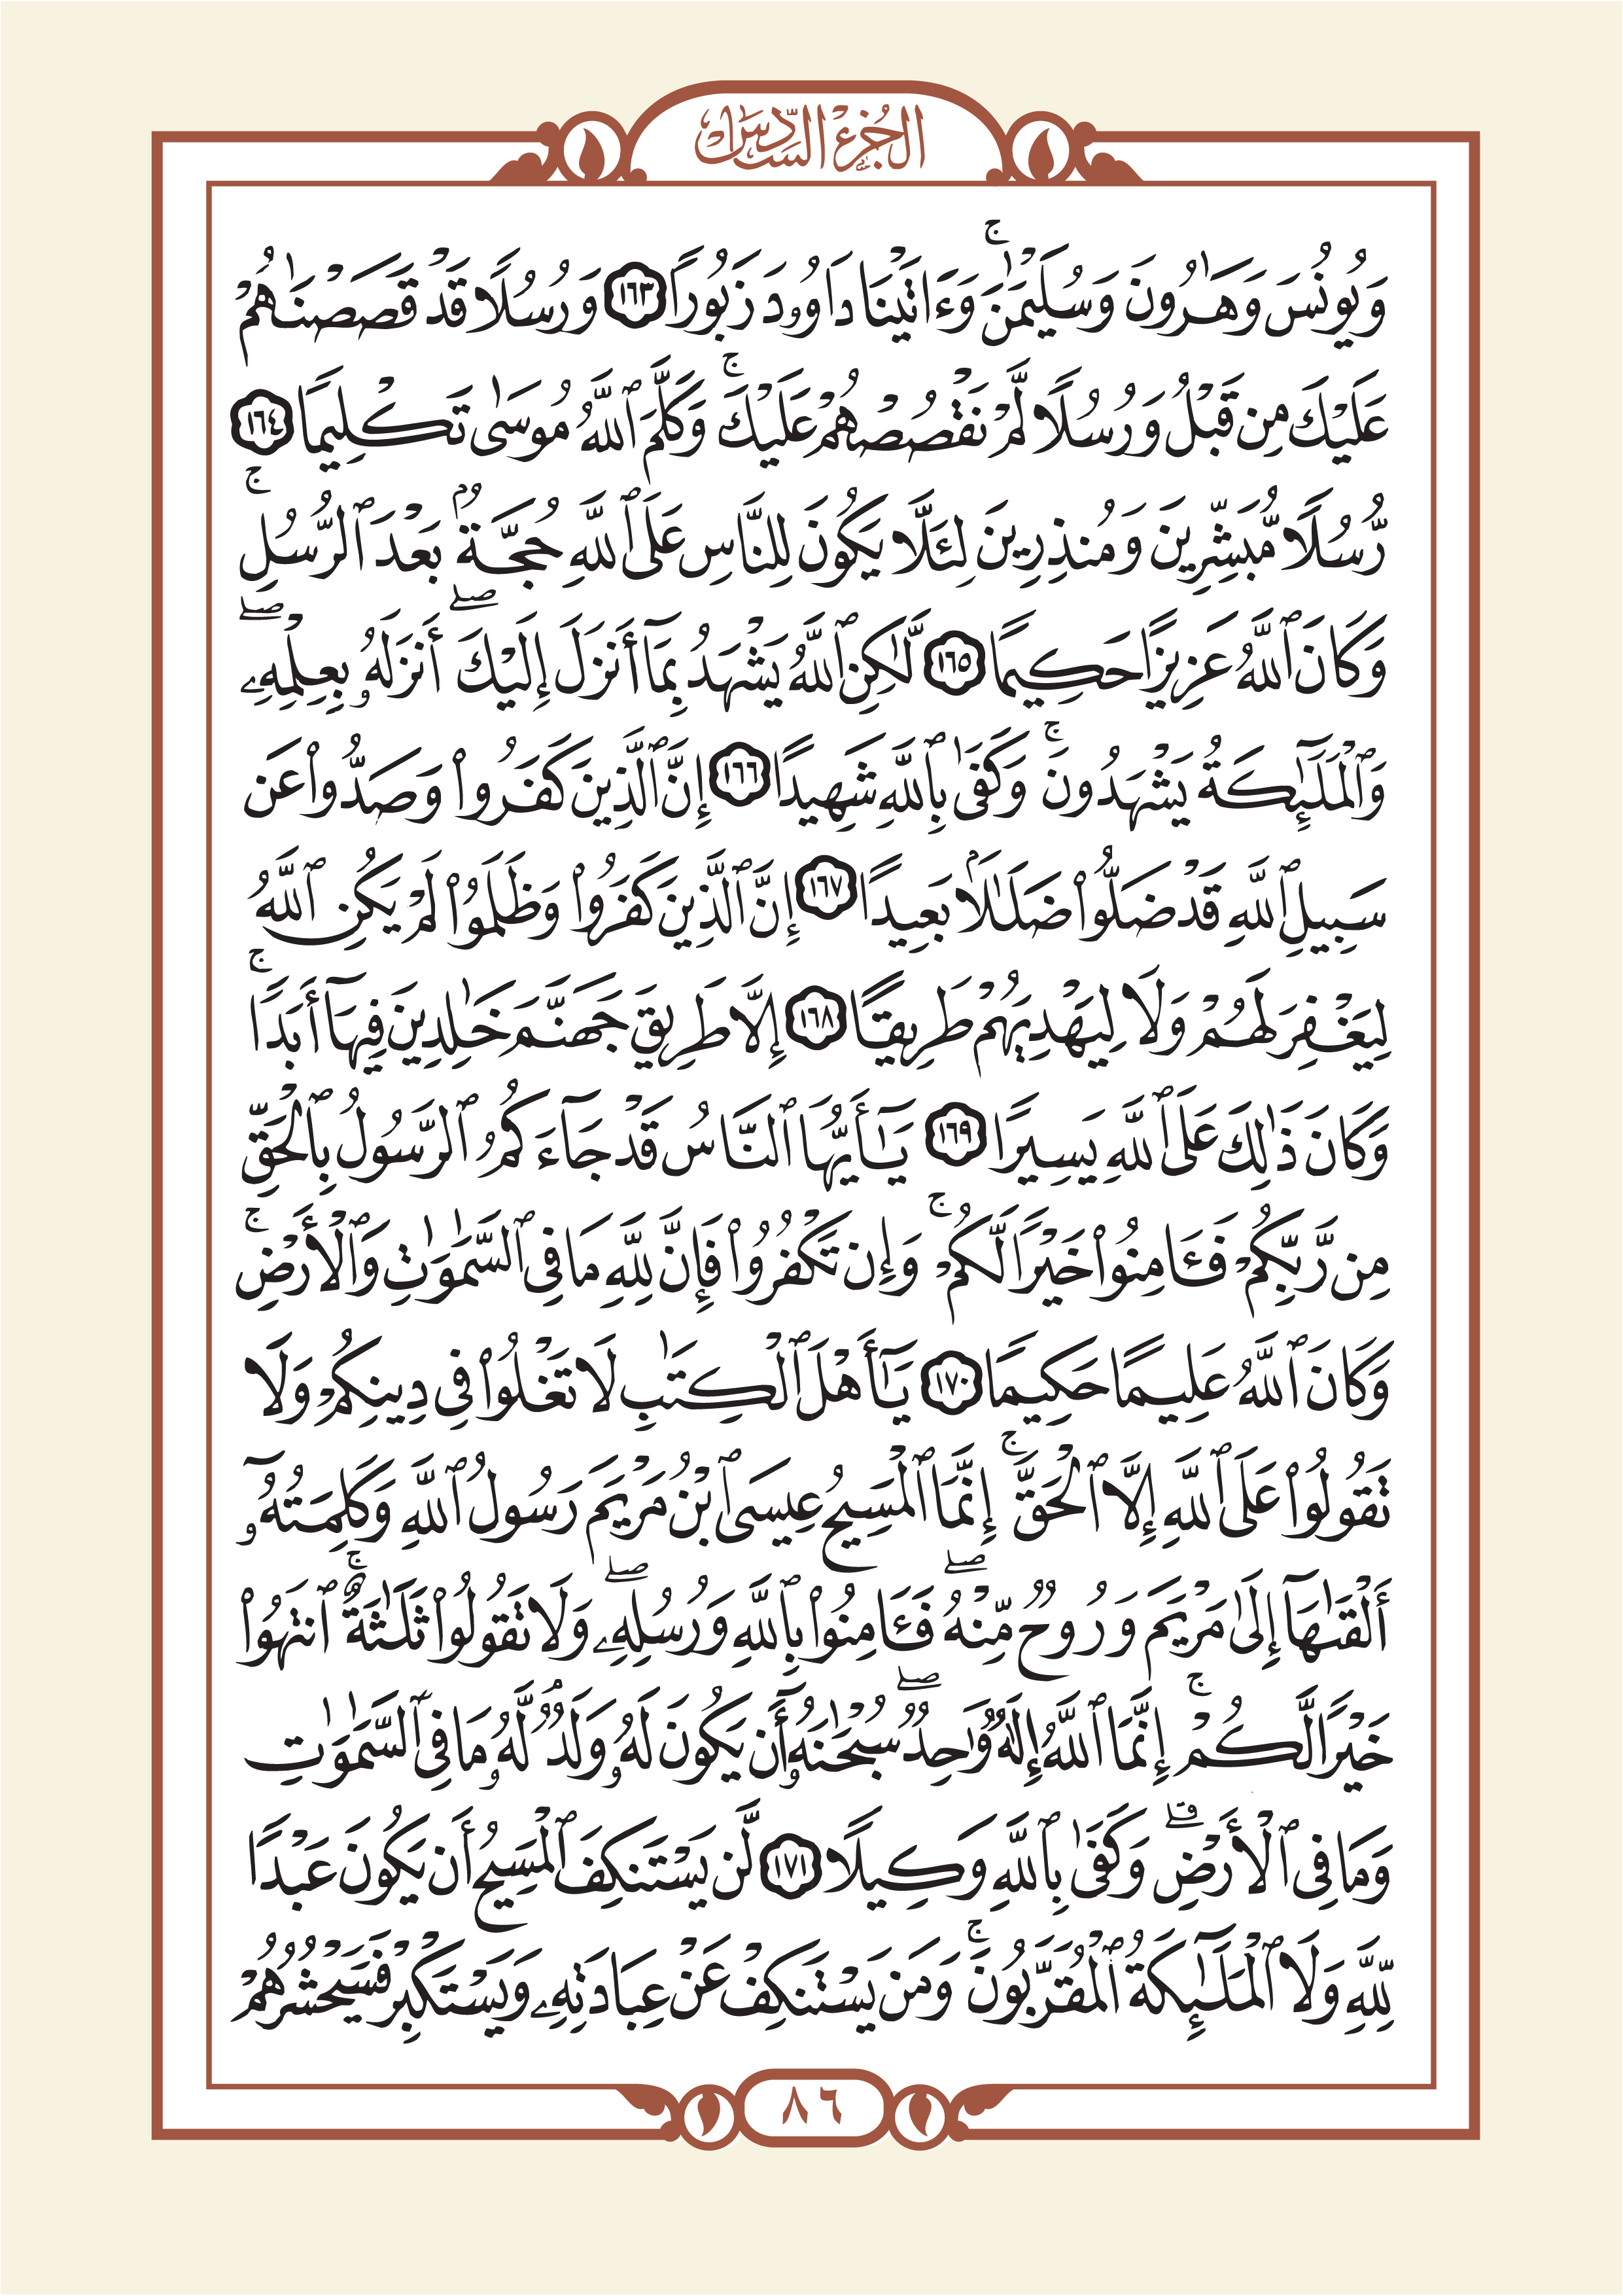 الجُزْءُ السَّادِسُ
وَيُونُسَ وَهَٰرُونَ وَسُلَيْمَٰنَۚ وَءَاتَيْنَا دَاوُۥدَ زَبُورًا ١٦٣ وَرُسُلًا قَدْ قَصَصْنَٰهُمْ
عَلَيْكَ مِن قَبْلُ وَرُسُلًا لَّمْ نَقْصُصْهُمْ عَلَيْكَۚ وَكَلَّمَ ٱللَّهُ مُوسَىٰ تَكْلِيمًا ١٦٤
رُّسُلًا مُّبَشِّرِينَ وَمُنذِرِينَ لِئَلَّا يَكُونَ لِلنَّاسِ عَلَى ٱللَّهِ حُجَّةٌۢ بَعْدَ ٱلرُّسُلِۚ
وَكَانَ ٱللَّهُ عَزِيزًا حَكِيمًا ١٦٥ لَّٰكِنِ ٱللَّهُ يَشْهَدُ بِمَآ أَنزَلَ إِلَيْكَۖ أَنزَلَهُۥ بِعِلْمِهِۦۖ
وَٱلْمَلَٰٓئِكَةُ يَشْهَدُونَۚ وَكَفَىٰ بِٱللَّهِ شَهِيدًا ١٦٦ إِنَّ ٱلَّذِينَ كَفَرُوا۟ وَصَدُّوا۟ عَن
سَبِيلِ ٱللَّهِ قَدْ ضَلُّوا۟ ضَلَٰلًۢا بَعِيدًا ١٦٧ إِنَّ ٱلَّذِينَ كَفَرُوا۟ وَظَلَمُوا۟ لَمْ يَكُنِ ٱللَّهُ
لِيَغْفِرَ لَهُمْ وَلَا لِيَهْدِيَهُمْ طَرِيقًا ١٦٨ إِلَّا طَرِيقَ جَهَنَّمَ خَٰلِدِينَ فِيهَآ أَبَدًاۚ
وَكَانَ ذَٰلِكَ عَلَى ٱللَّهِ يَسِيرًا ١٦٩ يَٰٓأَيُّهَا ٱلنَّاسُ قَدْ جَآءَكُمُ ٱلرَّسُولُ بِٱلْحَقِّ
مِن رَّبِّكُمْ فَـَٔامِنُوا۟ خَيْرًا لَّكُمْۚ وَإِن تَكْفُرُوا۟ فَإِنَّ لِلَّهِ مَا فِى ٱلسَّمَٰوَٰتِ وَٱلْأَرْضِۚ
وَكَانَ ٱللَّهُ عَلِيمًا حَكِيمًا ١٧٠ يَٰٓأَهْلَ ٱلْكِتَٰبِ لَا تَغْلُوا۟ فِى دِينِكُمْ وَلَا
تَقُولُوا۟ عَلَى ٱللَّهِ إِلَّا ٱلْحَقَّۚ إِنَّمَا ٱلْمَسِيحُ عِيسَى ٱبْنُ مَرْيَمَ رَسُولُ ٱللَّهِ وَكَلِمَتُهُۥٓ
أَلْقَىٰهَآ إِلَىٰ مَرْيَمَ وَرُوحٌ مِّنْهُۖ فَـَٔامِنُوا۟ بِٱللَّهِ وَرُسُلِهِۦۖ وَلَا تَقُولُوا۟ ثَلَٰثَةٌۚ ٱنتَهُوا۟
خَيْرًا لَّكُمْۚ إِنَّمَا ٱللَّهُ إِلَٰهٌ وَٰحِدٌۖ سُبْحَٰنَهُۥٓ أَن يَكُونَ لَهُۥ وَلَدٌۘ لَّهُۥ مَا فِى ٱلسَّمَٰوَٰتِ
وَمَا فِى ٱلْأَرْضِۗ وَكَفَىٰ بِٱللَّهِ وَكِيلًا ١٧١ لَّن يَسْتَنكِفَ ٱلْمَسِيحُ أَن يَكُونَ عَبْدًا
لِّلَّهِ وَلَا ٱلْمَلَٰٓئِكَةُ ٱلْمُقَرَّبُونَۚ وَمَن يَسْتَنكِفْ عَنْ عِبَادَتِهِۦ وَيَسْتَكْبِرْ فَسَيَحْشُرُهُمْ
٨٦